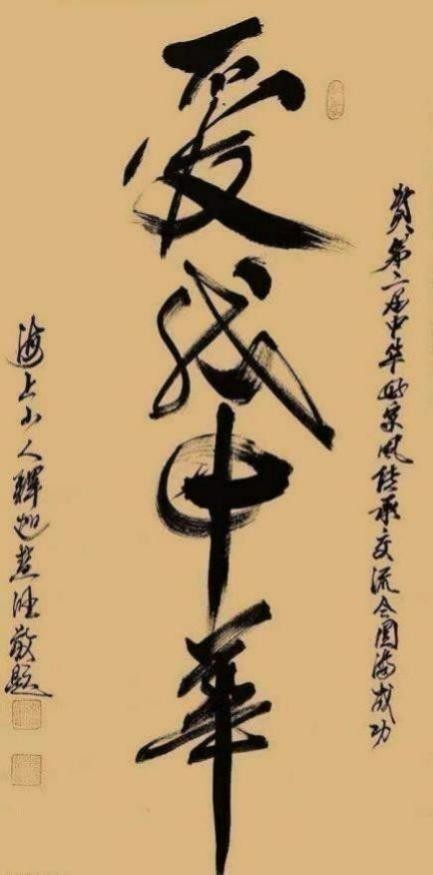 贺第二届中华好家风传承交流会圆满成功
爱我中華
海上山人釋迦慧敬题